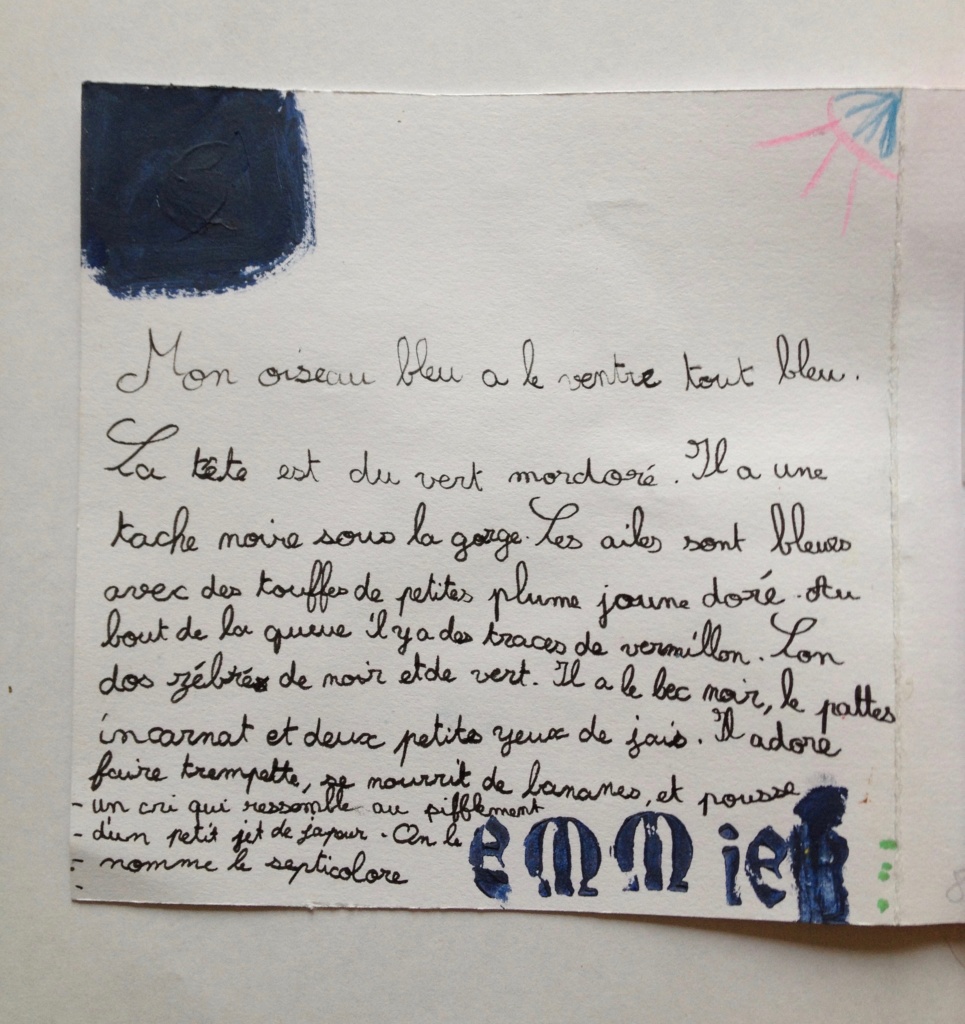 Mon oiseau bleu a le ventre tout bleu.
La tête est du vert mordoré. Il a une
tache noire sous la gorge. Les ailes sont bleues
avec des touffes de petites plume jaune doré. Au
bout de la queue il y a des traces de vermillon. Son
dos zébrés de noir et de vert. Il a le bec noir, le pattes
incarnat et deux petits yeux de jais. Il adore
faire trempette, se nourrit de bananes, et pousse
- un cri qui ressemble au sifflement
- d'un petit jet de vapeur. On le
- nomme le septicolore
emmie